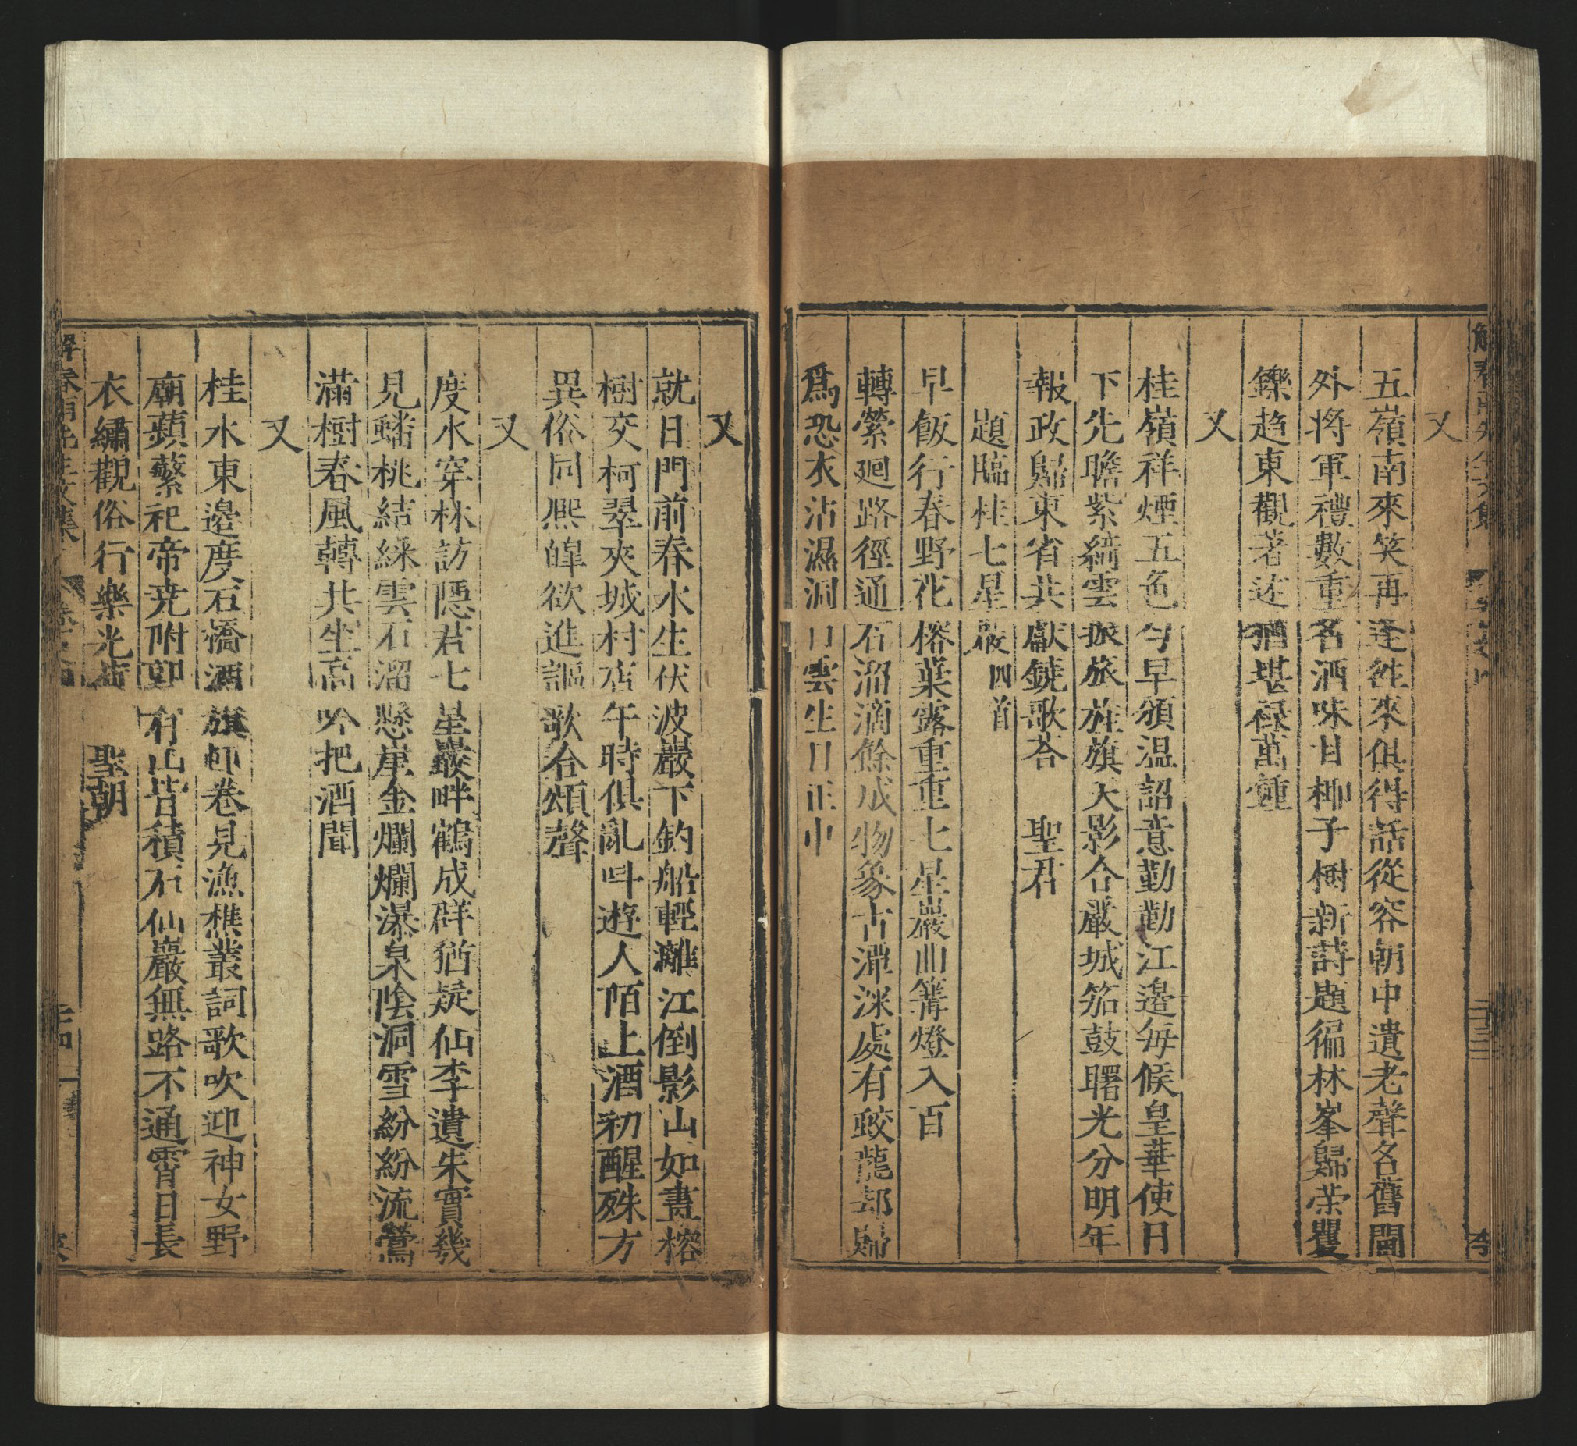 又
五嶺南來笑再逢徃來俱得話從容朝中遺老聲名舊閫
外將軍禮數重名酒味甘柳子樹新詩題徧林峯歸榮矍
鑠趍東觀著述猶堪祿萬鍾
又
桂嶺祥煙五色勻早頒温詔意勤勤江邊每候皇華使日
下先瞻紫綺雲振旅旌旗大影合嚴城笳鼓曙光分明年
報政歸東省共獻鐃歌荅 聖君
題臨桂七星巖四首
早飯行春野花榕葉露重重七星巖曲篝燈入百
轉縈廻路徑通石溜滴餘成物象古潭深處有蛟龍却歸
爲恐衣沾濕洞口雲生日正中
又
就日門前春水生伏波巖下釣船輕灕江倒影山如畫榕
樹交柯翠夾城村店午時俱亂叫遊人陌上酒初醒殊方
異俗同熙皥欲進謳歌合頌聲
又
度水穿林訪隠君七星巖畔鶴成群猶疑仙李遺朱實幾
見蟠桃結綵雲石溜懸崖金爛爛瀑泉陰洞雪紛紛流鶯
滿樹春風轉共坐高吟把酒聞
又
桂水東邊度石橋酒旗茆卷見漁樵叢詞歌吹迎神女野
廟蘋蘩祀帝尭附郭有山皆積石仙巖無路不通霄日長
衣繡觀俗行樂光華 聖朝
解春雨先生文集
二十四